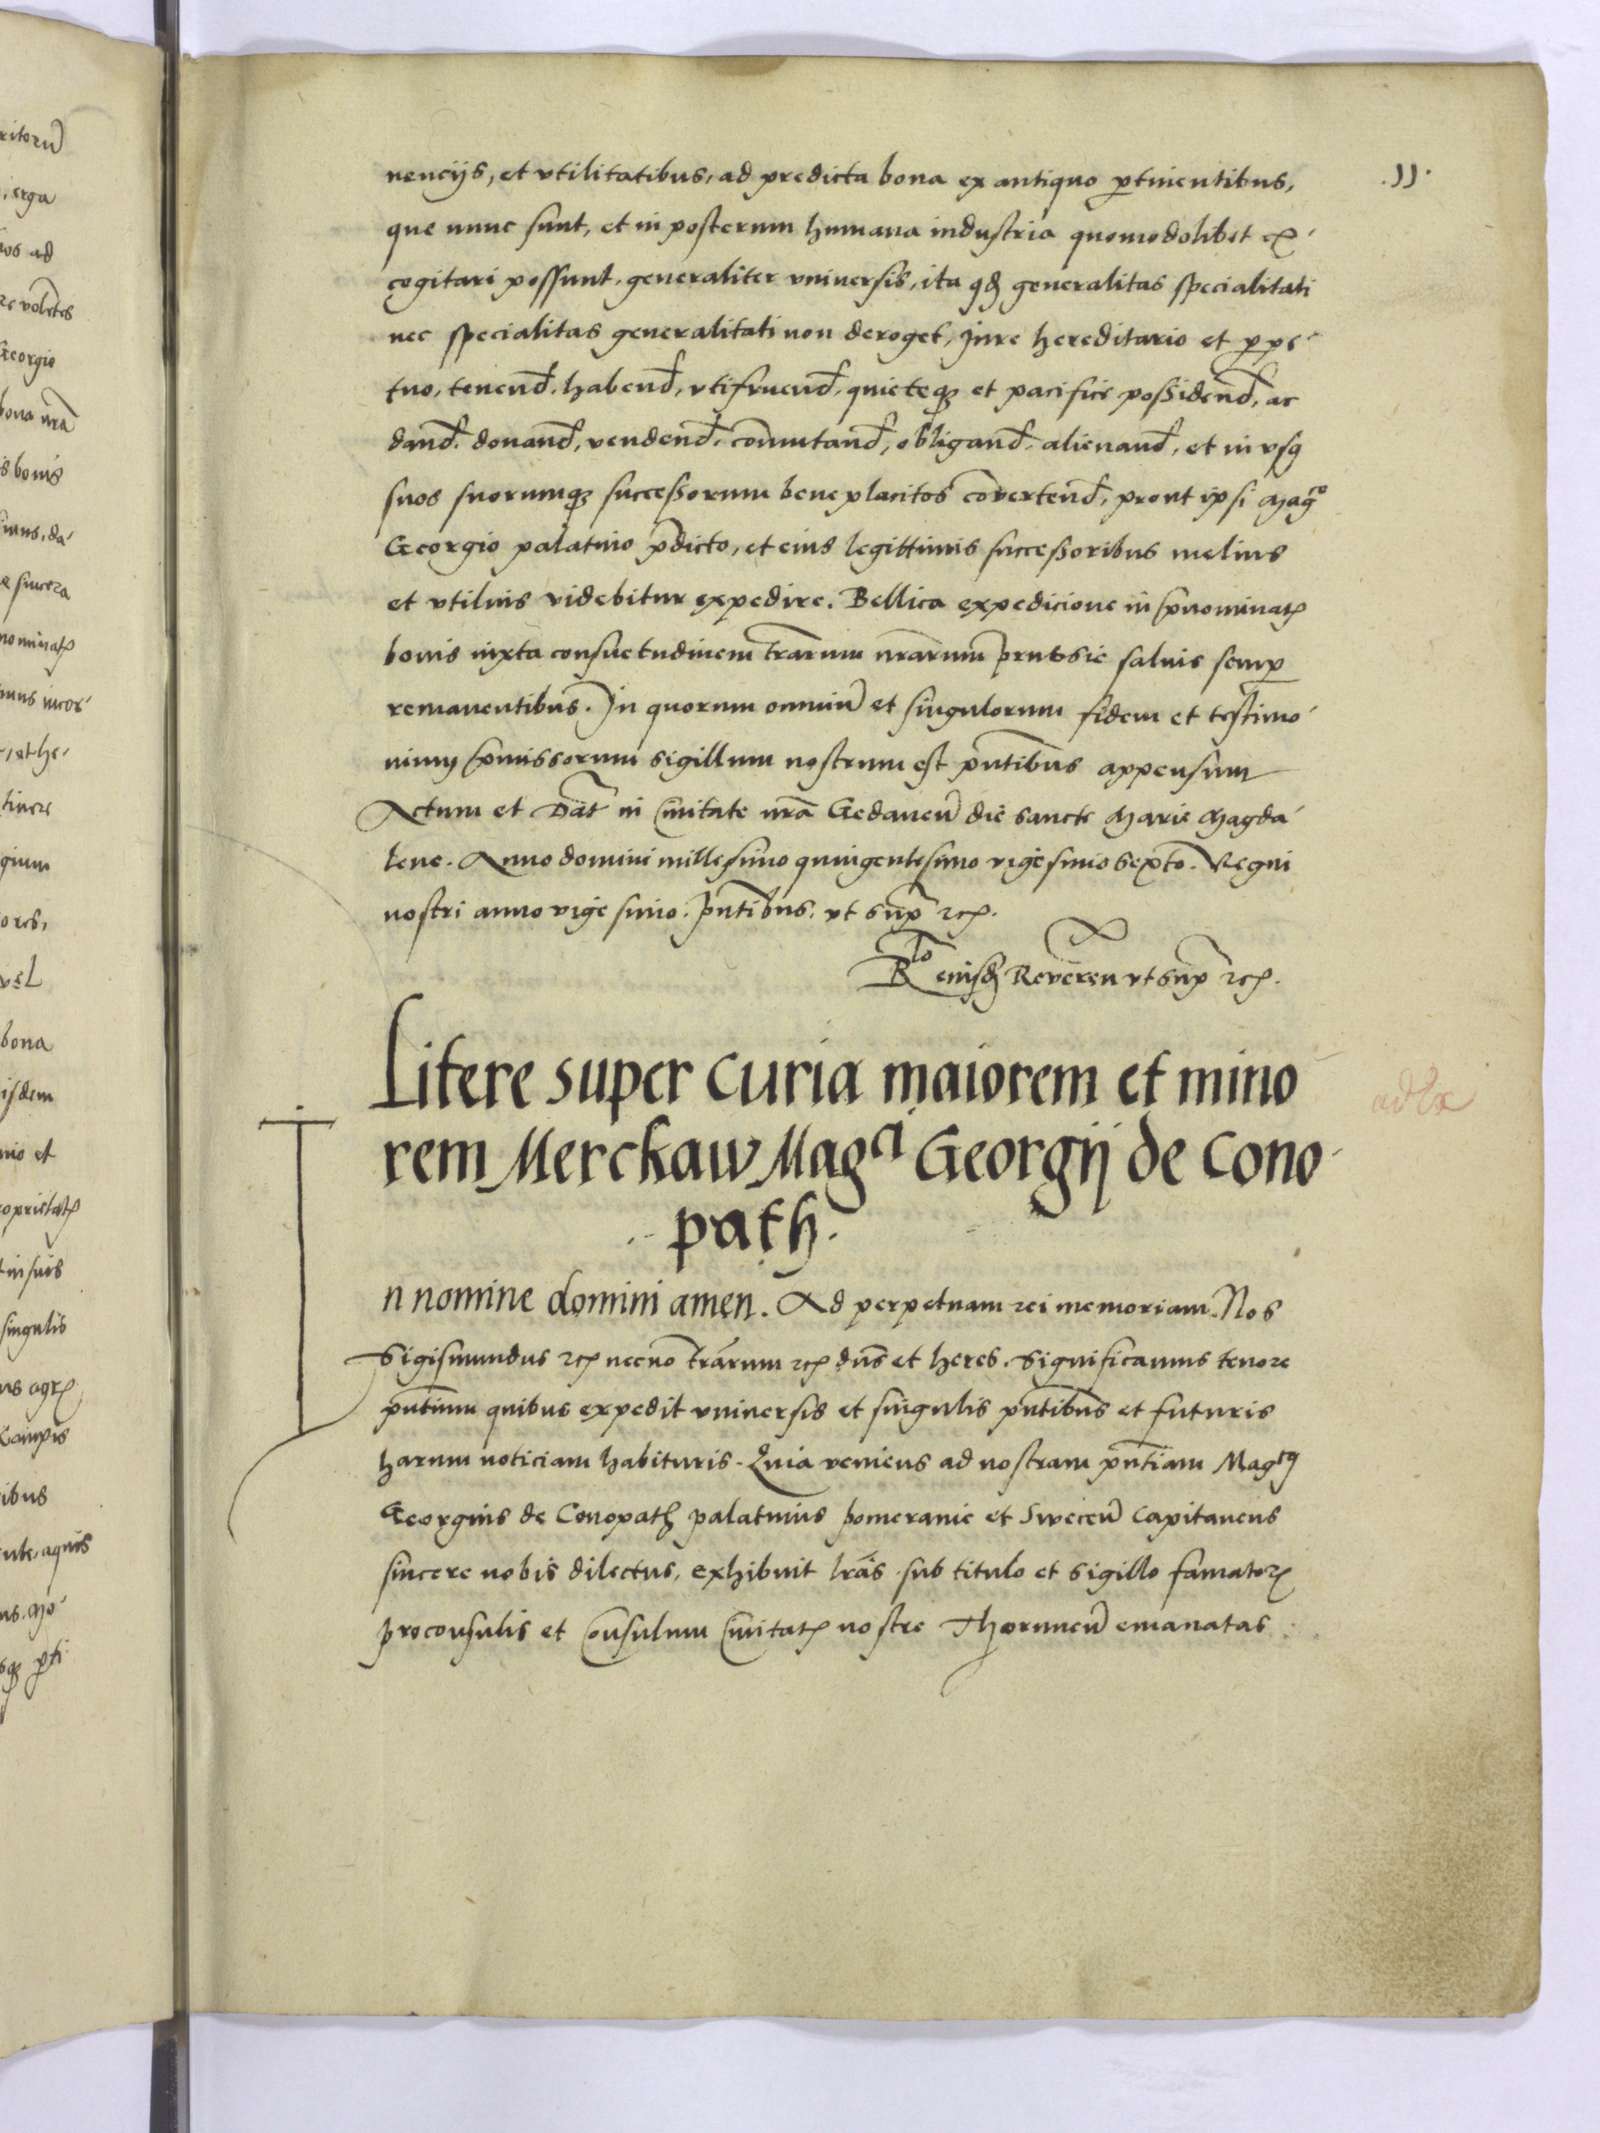 .11.
nencijs, et vtilitatibus, ad predicta bona ex antiquo ꝑtinentibus,
que nunc sunt, et in posterum humana industria quomodolibet ex
cogitari possunt, generaliter vniuersis, ita qd generalitas specialitati
nec specialitas generalitati non deroget, Iure hereditario et ꝑpe
tuo, tenend̄, habend̄, vtifruend̄, quieteqȝ et pacifice possidend̄, ac
dand̄, donand̄, vendend̄, com̄utand̄, obligand̄, alienand̄, et in vsꝯ
suos suorumqȝ successorum beneplacitos cōvertend̄, prout ipsi Mag̃co
Georgio palatino p̄dicto, et eius legittimis successoribus melius
et vtilius videbitur expedire. Bellica expedicione in p̄nominatꝭ
bonis iuxta consuetudinem tr̄arum nr̄arum prussie saluis semꝑ
remanentibus. In quorum omniū et singulorum fidem et testimo
nium p̄missorum sigillum nostrum est pn̄tibus appensum
Actum et Dat̄ in ciuitate nr̄a Gedaneñ die sancte Marie Magda
lene. Anno domini millesimo quingentesimo vigesimo sexto. Regni
nostri anno vigesimo. pn̄tibus. vt sup̄ rcꝭ.
Rlo eiusd̄ Reveren vt sup̄ rcꝭ.
Litere super curia maiorem et mino
rem Merckaw Magci Georgij de Cono
path.
n nomine domini amen. Ad perpetuam rei memoriam. Nos
Sigismundus rcꝭ necno tr̄arum rcꝭ dn̄s et heres. Significamus tenore
pn̄tium quibus expedit vniuersis et singulis pn̄tibus et futuris
harum noticiam habituris. Quia veniens ad nostram pn̄tiam Magcꝯ
Georgius de Conopath palatinus pomeranie et Sweceñ Capitaneus
sincere nobis dilectus, exhibuit lr̄as sub titulo et sigillo famatorꝭ
proconsulis et consulum ciuitatꝭ nostre Thoruneñ emanatas